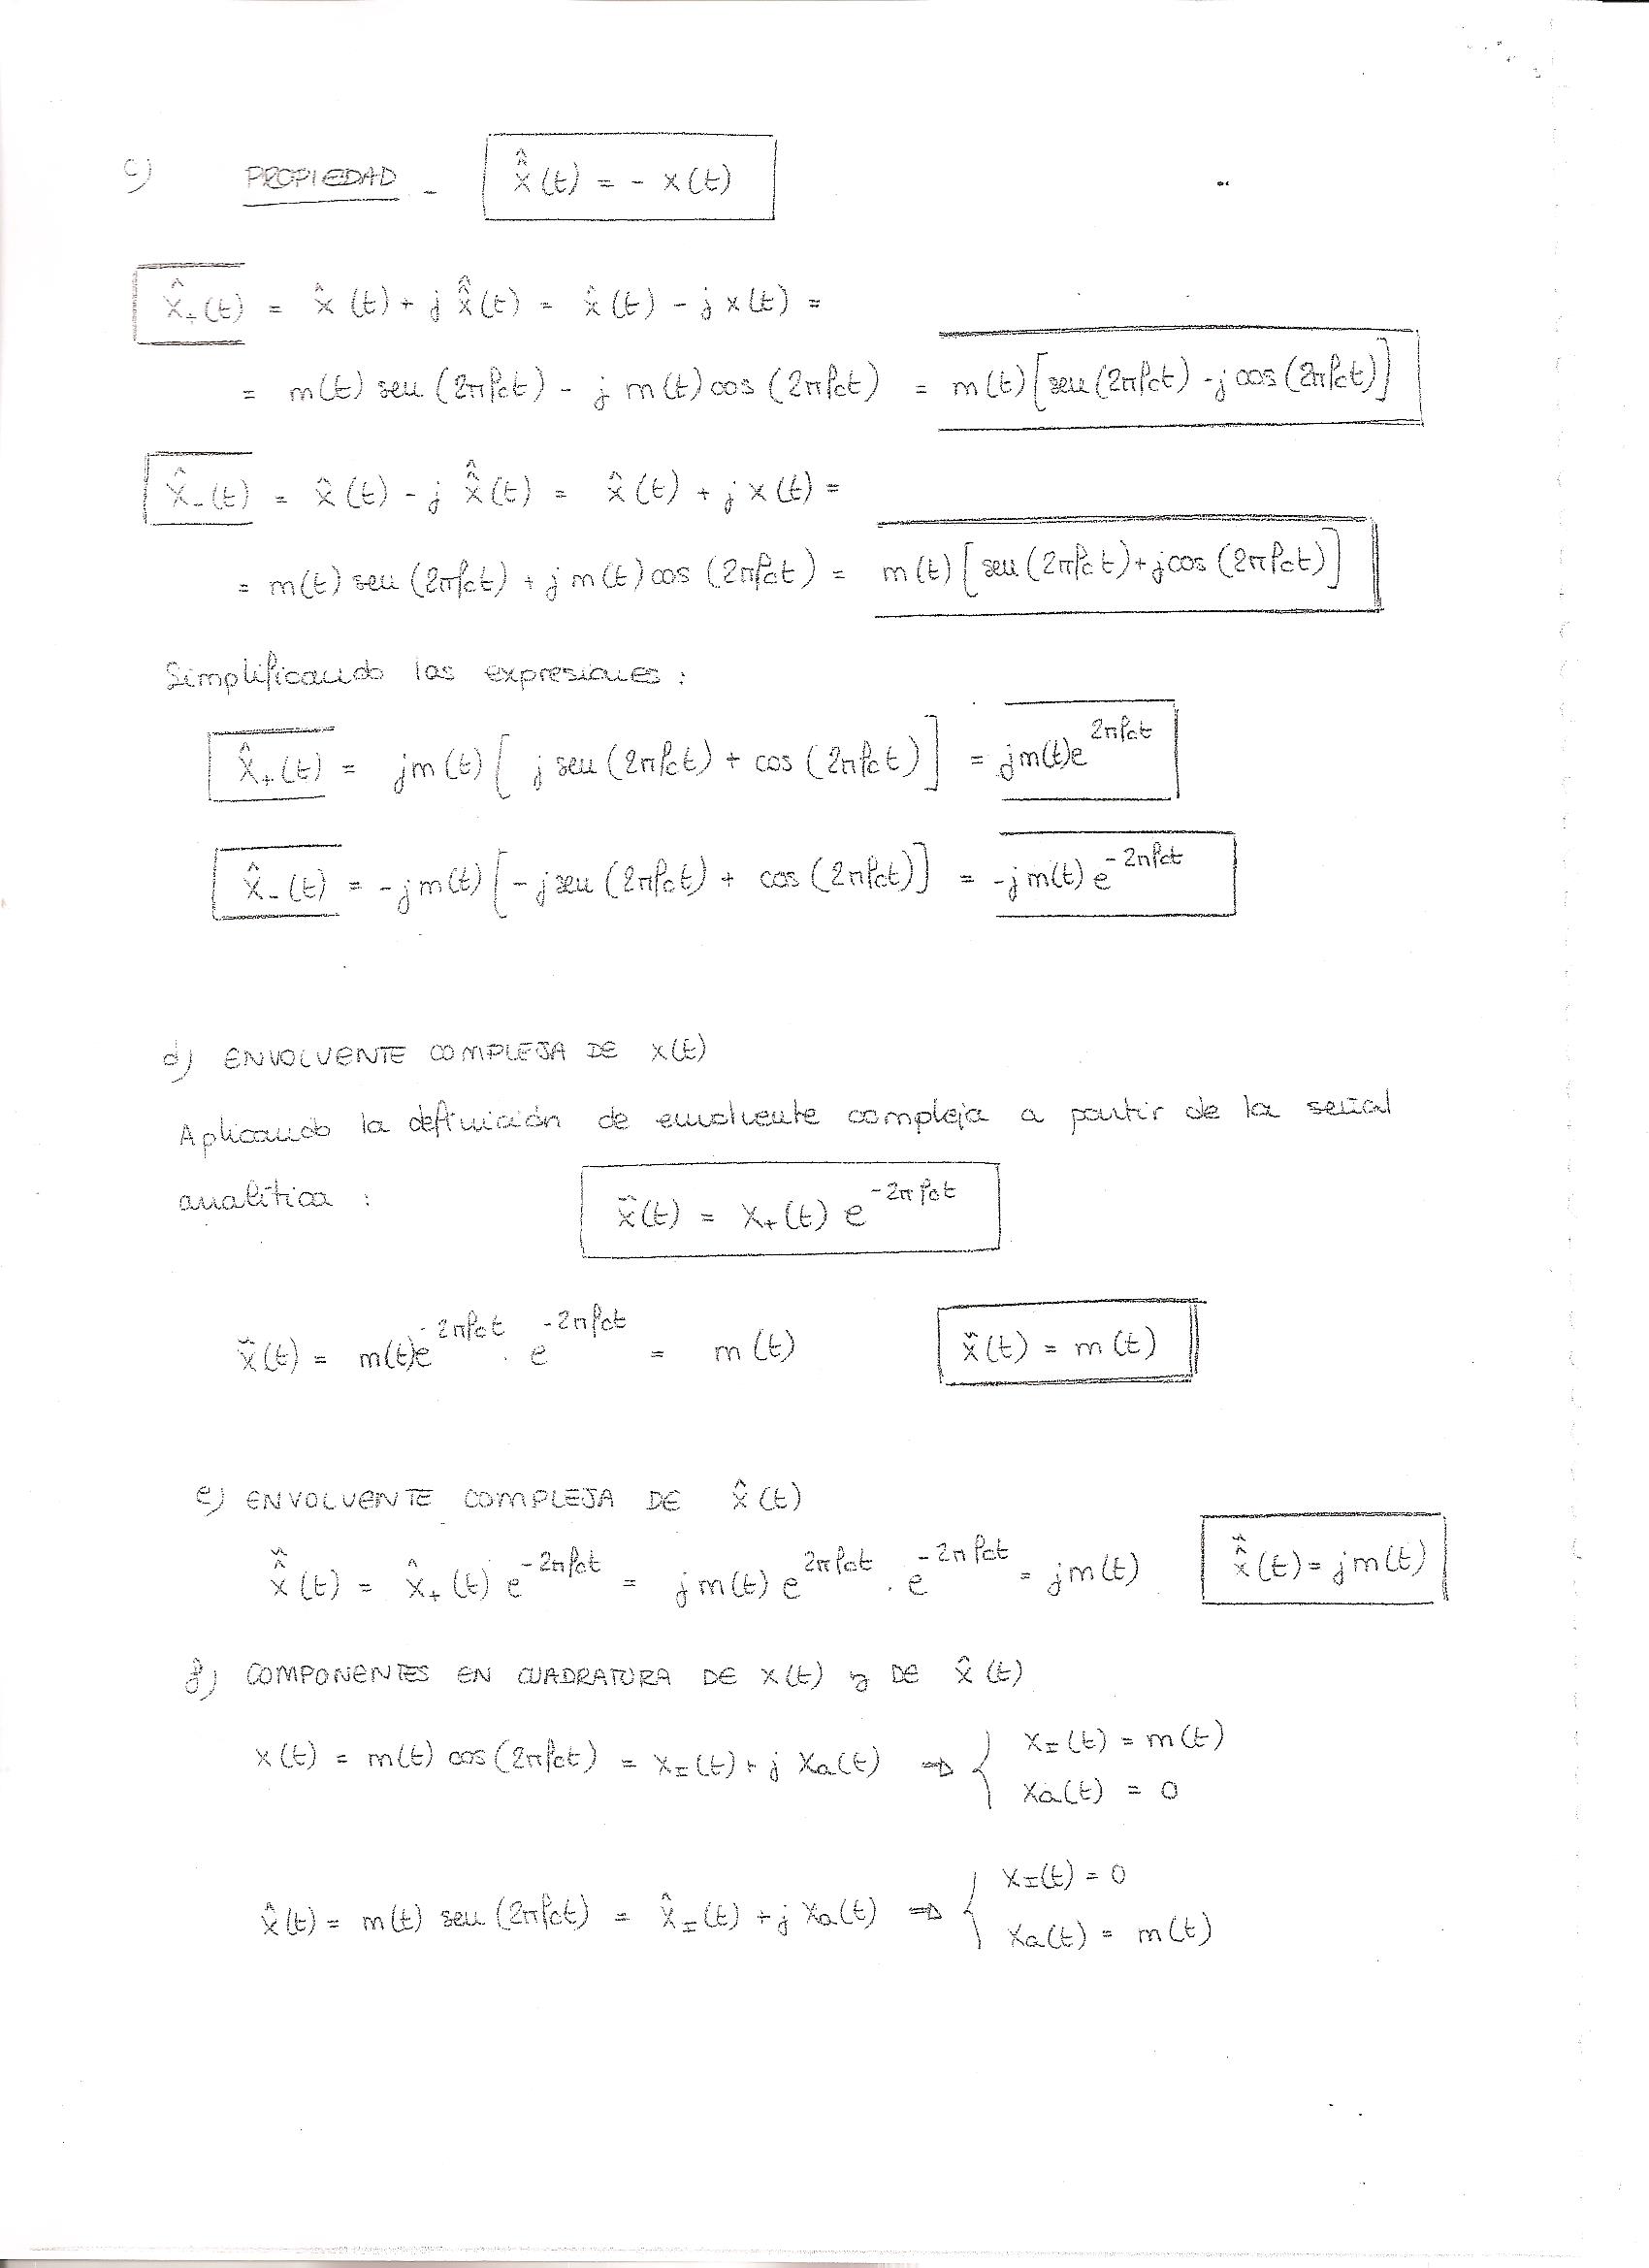 c) PROPIEDAD - x̂̂(t) = - x(t)
x̂₊(t) = x̂(t) + j x̂̂(t) = x̂(t) - j x(t) =
= m(t) sen (2πfct) - j m(t) cos (2πfct) = m(t) [sen (2πfct) - j cos (2πfct)]
x̂₋(t) = x̂(t) - j x̂̂(t) = x̂(t) + j x(t) =
= m(t) sen (2πfct) + j m(t) cos (2πfct) = m(t) [sen (2πfct) + j cos (2πfct)]
Simplificando las expresiones :
x̂₊(t) = jm(t) [ j sen (2πfct) + cos (2πfct) ] = jm(t)e^2πfct
x̂₋(t) = -jm(t) [ -j sen (2πfct) + cos (2πfct) ] = -jm(t) e^-2πfct
d) ENVOLVENTE COMPLEJA DE x(t)
Aplicando la definición de envolvente compleja a partir de la señal
analítica : x̃(t) = x₊(t) e^-2πfct
x̃(t) = m(t)e^2πfct · e^-2πfct = m(t) x̃(t) = m(t)
e) ENVOLVENTE COMPLEJA DE x̂(t)
x̂̃(t) = x̂₊(t) e^-2πfct = jm(t) e^2πfct · e^-2πfct = jm(t) x̂̃(t) = jm(t)
f) COMPONENTES EN CUADRATURA DE x(t) y DE x̂(t)
x(t) = m(t) cos (2πfct) = x_I(t) + j x_Q(t) ⇒ { x_I(t) = m(t)
x_Q(t) = 0
x̂(t) = m(t) sen (2πfct) = x̂_I(t) + j x_Q(t) ⇒ { x_I(t) = 0
x_Q(t) = m(t)